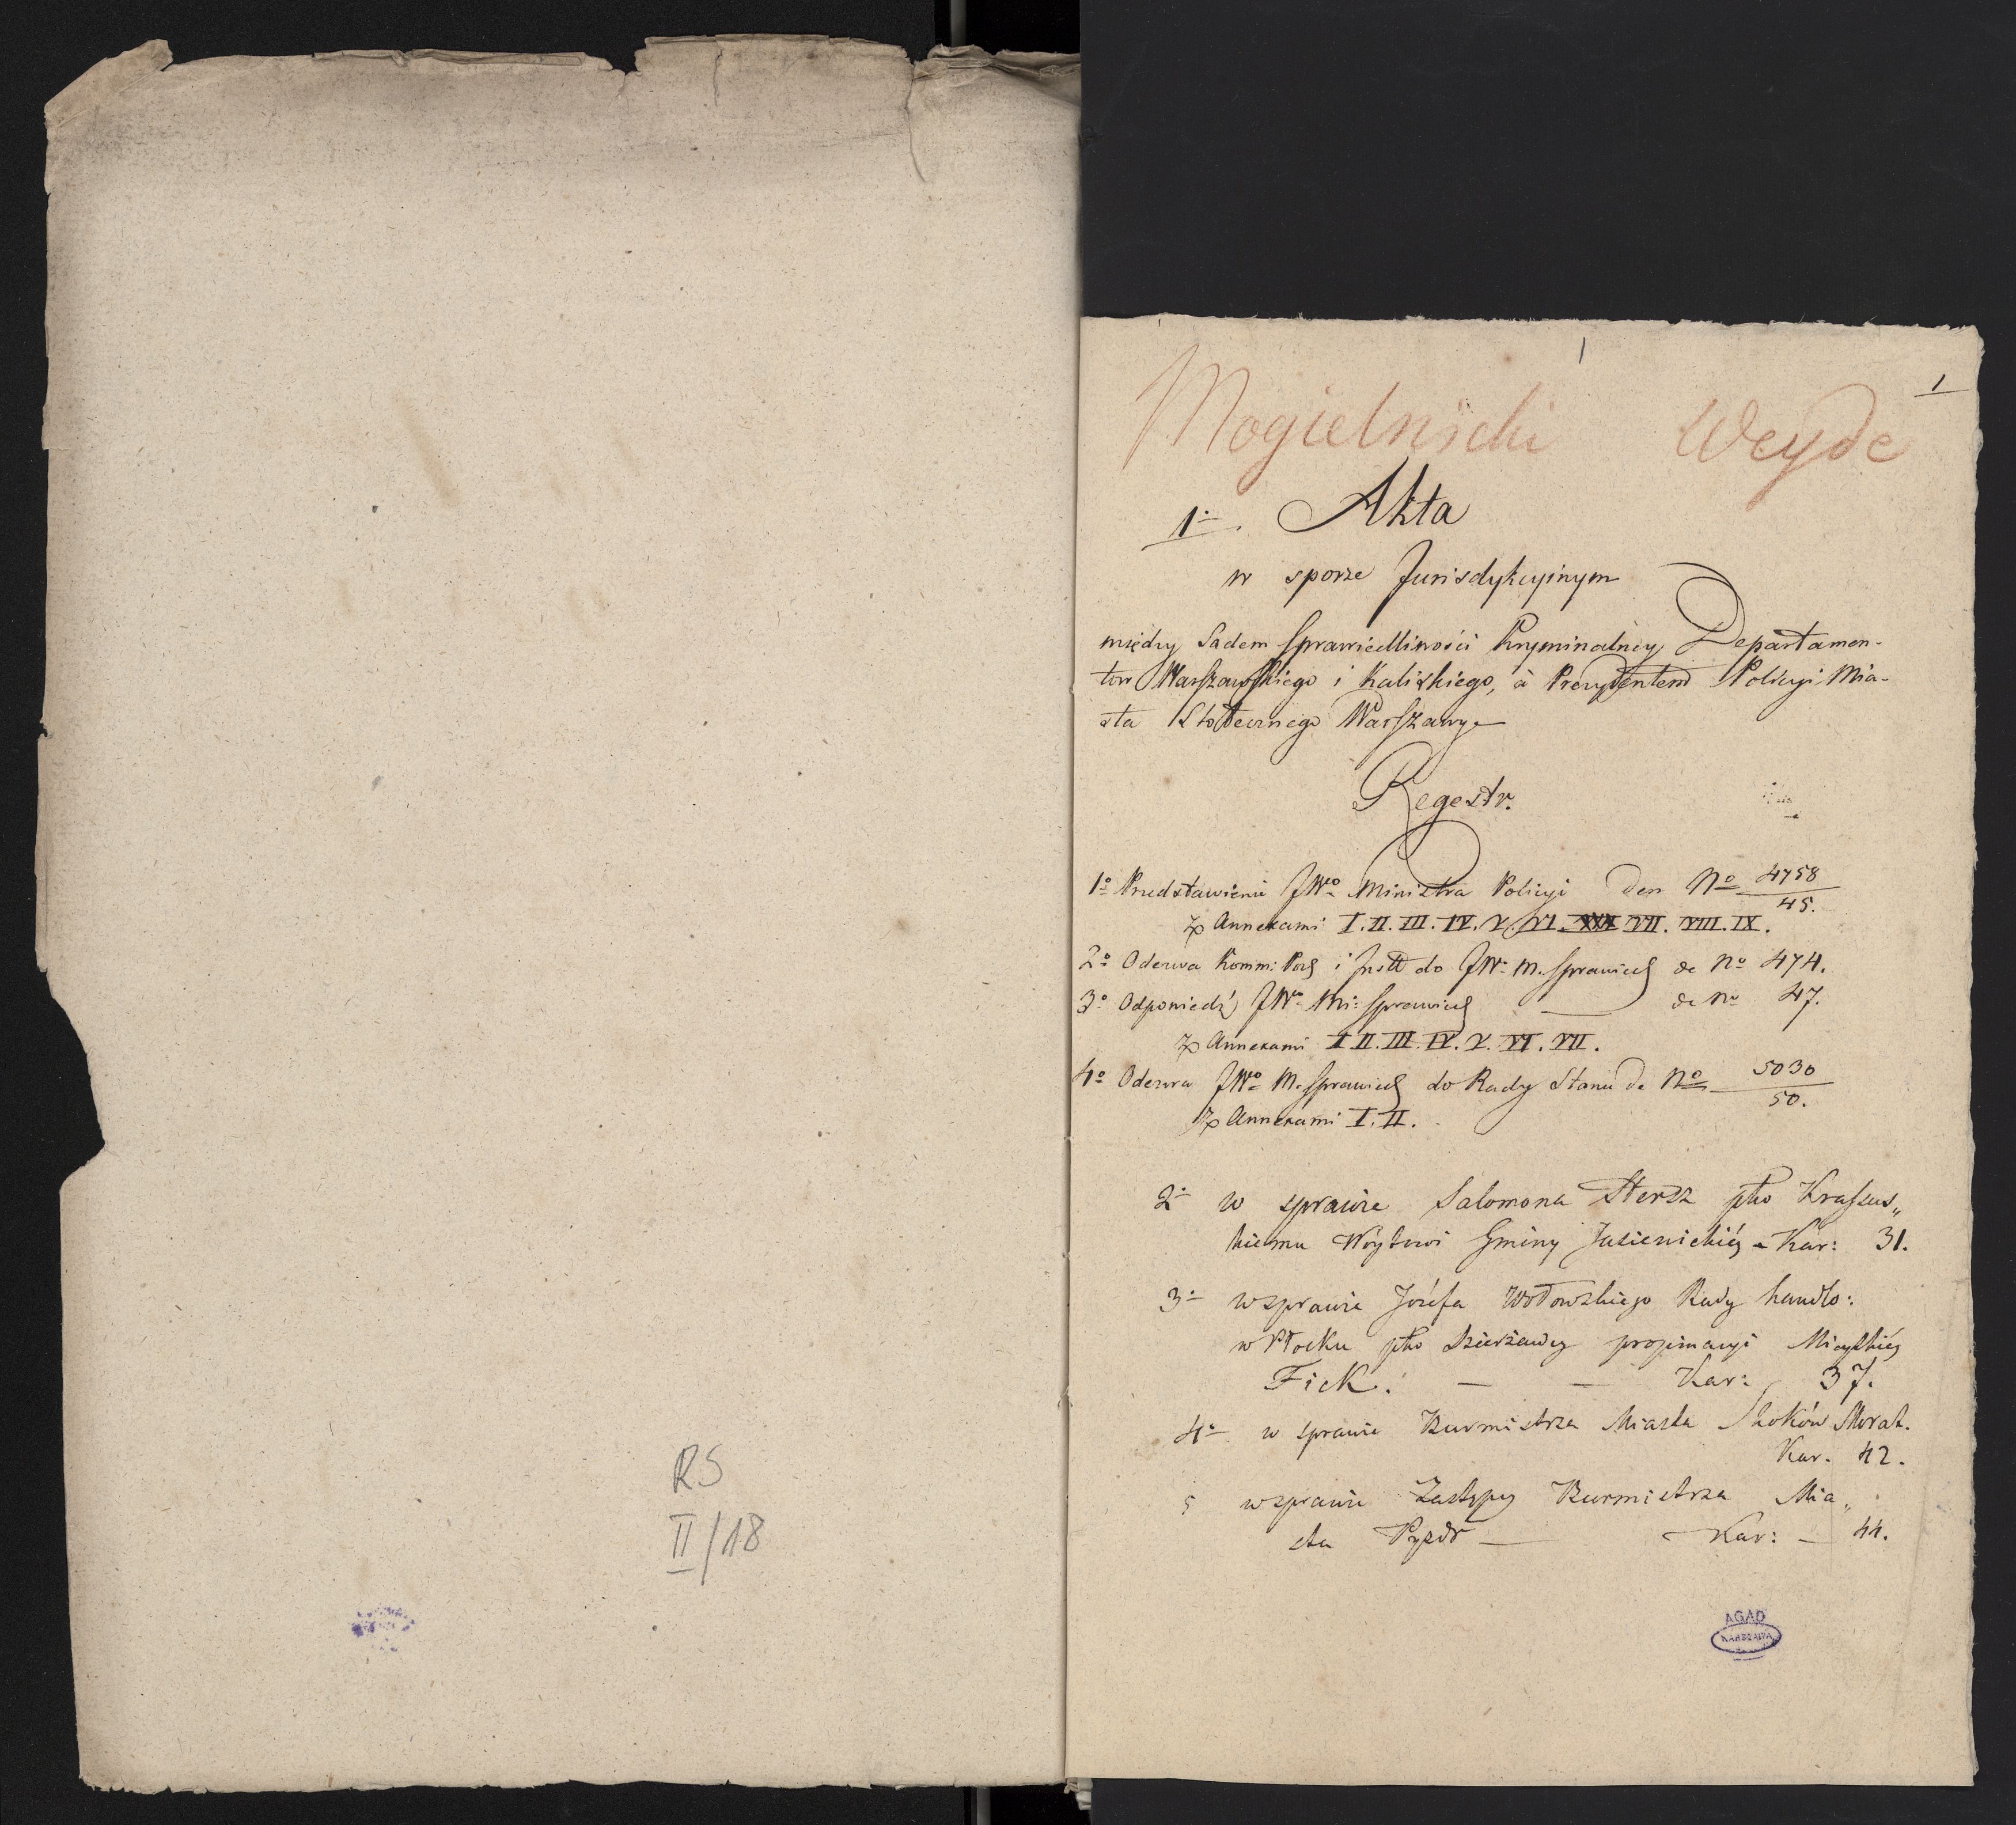 RS
II/18
1
1
Mogielnicki Weyde
1º. Akta
w sporze Jurisdykcyinym
między Sadem Sprawiedliwości Kryminalney Departamen-
tow Warszawskiego i Kaliskiego, à Prezydentem Policyi Mia-
sta Stołecznego Warszawy
Regestr.
1º Przedstawienie JWgo Ministra Policyi den Nº 4758/45.
z Annexami I. II. III. IV. V. VI. VII. VIII. IX.
2º Odezwa Kommi: i Inst do JWº M. Sprawiedl de Nº 474.
3º Odpowiedź JWgo Mi: Sprawiedl de Nº 47.
z Annexami I II. III. IV. V. VI. VII.
4º Odezwa JWgo M. Sprawiedl do Rady Stanu de Nº 5030/50.
z Annexami I. II.
2º w sprawie Salomona Stersz pko Krassus„
kiemu Wóytowi Gminy Jasienickiéy - Kar: 31.
3º w sprawie Józefa Wołowskiego Rady handlo:
w Płocku pko Dzierżawcy propinacyi Mieyskiéy
Fick. — — Kar: 37.
4º w sprawie Burmistrza Miasta
Kar. 42.
5 w sprawie Zastępcy Burmistrza Mia„
sta Pyzdr — Kar: — 44.
AGAD
WARSZAWA